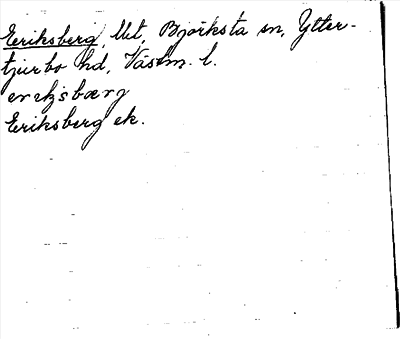 Eriksberg, llt, Björksta sn, Ytter-
tjurbo hd, Västm. l.
Eriksberg ek.